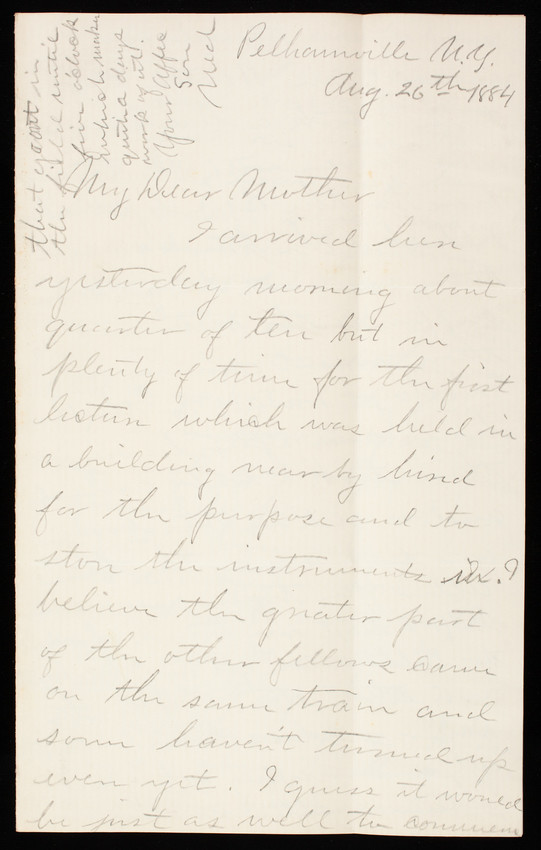 Pelhamville N.Y.
Aug. 26th 1884
My Dear Mother
I arrived here
yesterday morning about
quarter of ten but in
plenty of time for the first
lecture which was held in
a building near by hired
for the purpose and to
store the instruments in. I
believe the greater part
of the other fellows came
on the same train and
some haven't turned up
even yet. I guess it would
be just as well to commence
that go out in
the field until
five oclock
which makes
quite a days
work of it.
Your Affec
Son
Ned